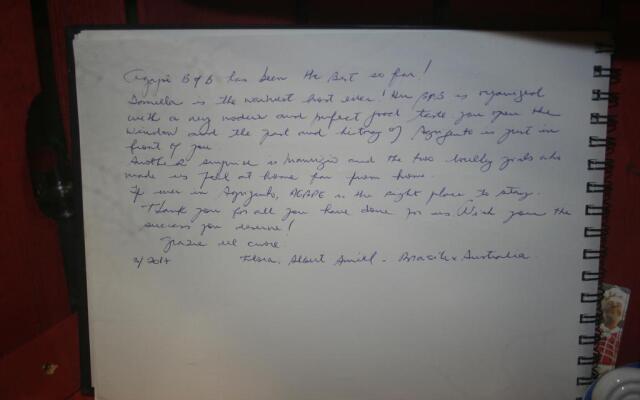 Agape B&B has been the best so far!
is the warmest host ever! Her B&B is organized
with a very modern and perfect good taste you open the
window and the past and history of Agrigento is just in
front of you
surprise is and the two lovely girls who
made us feel at home far from home.
If ever in Agrigento, AGAPE is the right place to stay.
Thank you for all you have done for us Wish you the
success you deserve!
Grazie cuore
Albert - Australia